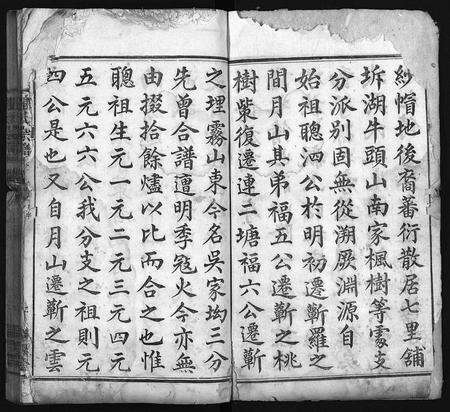 紗帽地後裔蕃衍散居七里舖
坼湖牛頭山南家楓樹等處支
分派別固無從溯厥淵源自
始祖聰泗公於明初遷蘄羅之
間月山其弟福五公遷蘄之桃
樹紫復遷連二塘福六公遷蘄
之埋霧山東今名吳家坳三分
先曾合譜遭明季冦火今亦無
由掇拾餘燼以比而合之也惟
聰祖生元一元二元三元四元
五元六六公我分支之祖則元
四公是也又自月山遷蘄之雲